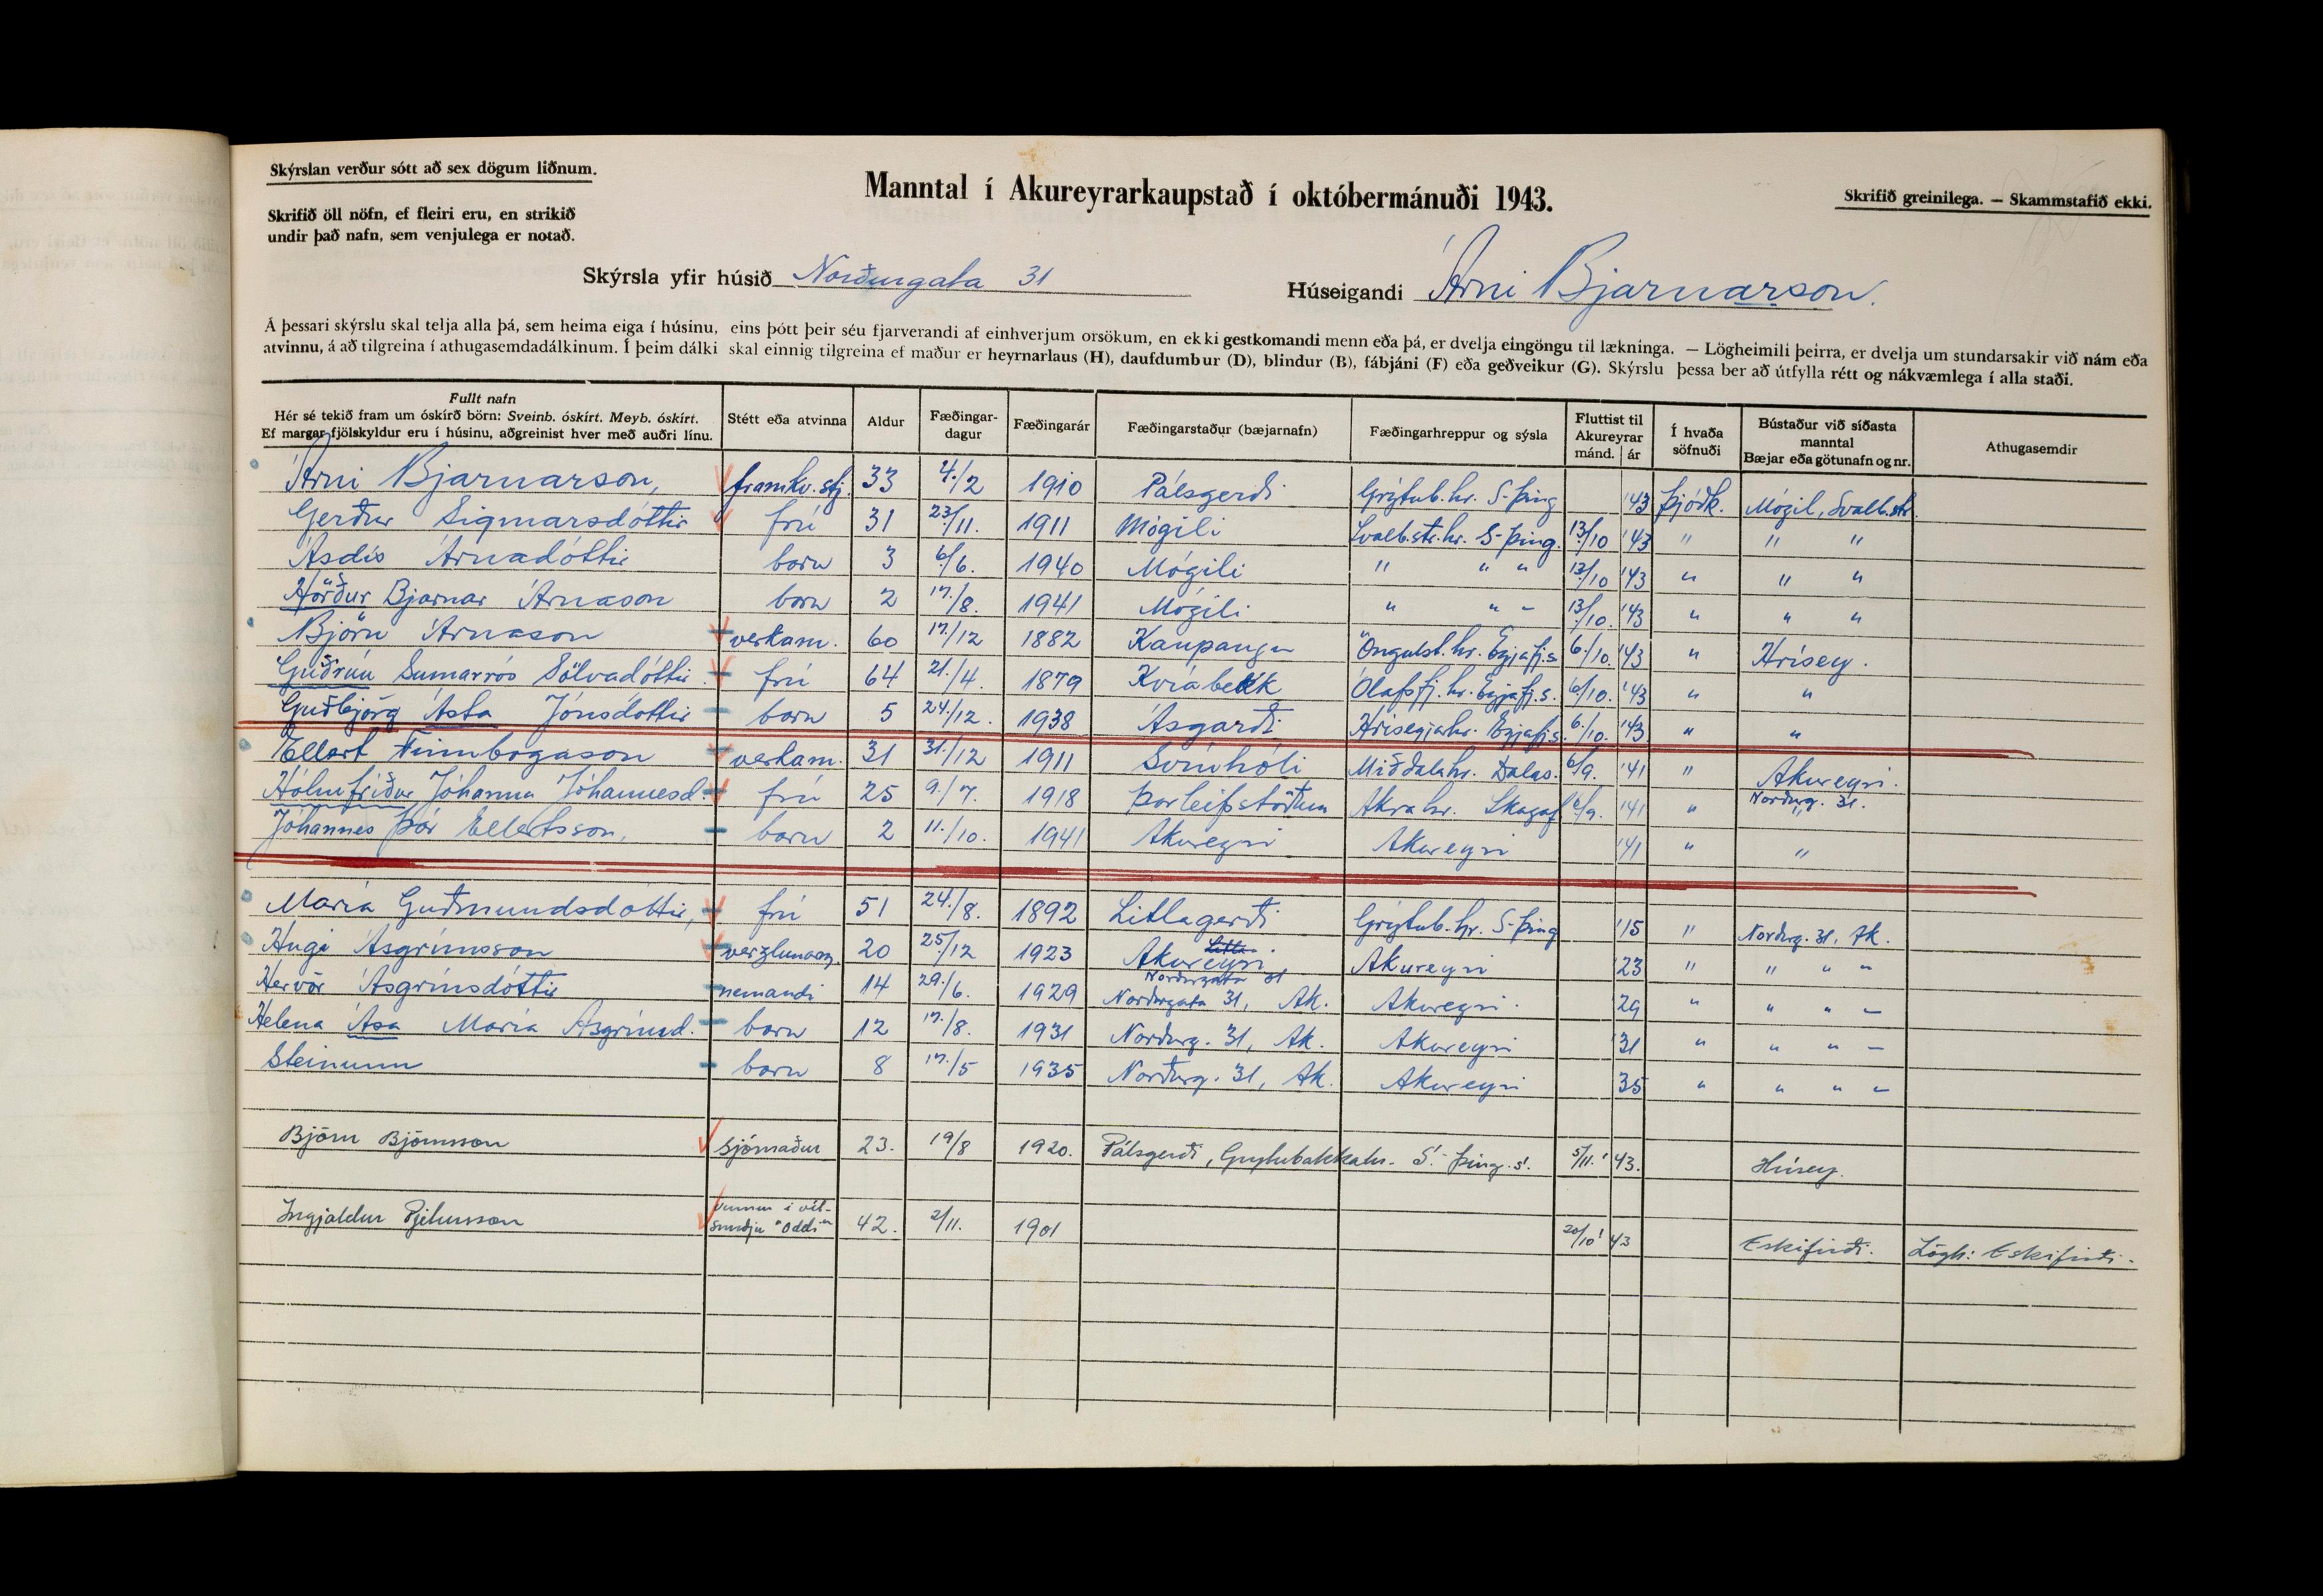 Skýrslan verður sótt að sex dögum liðnum.
Skrifið öll nöfn, ef fleiri eru, en strikið
undir það nafn, sem venjulega er notað.
Manntal í Akureyrarkaupstað í októbermánuði 1943.
Skrifið greinilega. — Skammstafið ekki.
Skýrsla yfir húsið Norðurgata 31
Húseigandi Árni Bjarnarson.
Á þessari skýrslu skal telja alla þá, sem heima eiga í húsinu, eins þótt þeir séu fjarverandi af einhverjum orsökum, en ekki gestkomandi menn eða þá, er dvelja eingöngu til lækninga. — Lögheimili þeirra, er dvelja um stundarsakir við nám eða
atvinnu, á að tilgreina í athugasemdadálkinum. Í þeim dálki skal einnig tilgreina ef maður er heyrnarlaus (H), daufdumbur (D), blindur (B), fábjáni (F) eða geðveikur (G). Skýrslu þessa ber að útfylla rétt og nákvæmlega í alla staði.
Fullt nafn
Hér sé tekið fram um óskírð börn: Sveinb. óskírt. Meyb. óskírt.
Ef margar fjölskyldur eru í húsinu, aðgreinist hver með auðri línu.
Stétt eða atvinna
Aldur
Fæðingar-
dagur
Fæðingarár
Fæðingarstaður (bæjarnafn)
Fæðingarhreppur og sýsla
Fluttist til
Akureyrar
mánd. ár
Í hvaða
söfnuði
Bústaður við síðasta
manntal
Bæjar eða götunafn og nr.
Athugasemdir
Árni Bjarnarson, framkv.stj. 33 4./2 1910 Pálsgerði Grýtub.hr. S-Þing '43 Þjóðk. Mógil, Svalb.str.
Gerður Sigmarsdóttir frú 31 23/11. 1911 Mógili Svalb.str.hr. S-Þing. 13/10 '43 " " "
Ásdís Árnadóttir barn 3 6/6. 1940 Mógili " " " 13/10 '43 " " "
Hörður Bjarnar Árnason barn 2 17./8. 1941 Mógili " " " 13/10. '43 " " "
Björn Árnason verkam. 60 17./12 1882 Kaupangur Öngulst.hr. Eyjafj.s. 6./10. '43 " Hrísey.
Guðrún Sumarrós Sölvadóttir frú 64 21./4. 1879 Kvíabekk Ólafsfj.hr. Eyjafj.s. 6/10. '43 " "
Guðbjörg Ásta Jónsdóttir barn 5 24./12. 1938 Ásgarði Hríseyjarhr. Eyjafj.s. 6./10. '43 " "
Ellert Finnbogason verkam. 31 31./12 1911 Svínhóli Miðdalahr. Dalas. 6/9. '41 " Akureyri.
Norðurg. 31.
Hólmfríður Jóhanna Jóhannesd. frú 25 9./7. 1918 Þorleifsstöðum Akrahr. Skagaf. 6/9. '41 " "
Jóhannes Þór Ellertsson, barn 2 11./10. 1941 Akureyri Akureyri '41 " "
María Guðmundsdóttir, frú 51 24./8. 1892 Litlagerði Grýtub.hr. S-Þing '15 " Norðurg. 31, Ak.
Hugi Ásgrímsson verzlunarm. 20 25/12 1923 Akureyri Akureyri '23 " " " "
Norðurgata 31
Hervör Ásgrímsdóttir nemandi 14 29./6. 1929 Norðurgata 31, Ak. Akureyri. 29 " " " "
Helena Ása María Ásgrímsd. barn 12 17./8. 1931 Norðurg. 31, Ak. Akureyri '31 " " " "
Steinunn barn 8 17./5 1935 Norðurg. 31, Ak. Akureyri 35 " " " "
Björn Björnsson sjómaður 23. 19/8 1920. Pálsgerði, Grýtubakkahr. S.-Þing.s. 5/11.' 43. Hrísey.
Ingjaldur Pjetursson vinnur í vél-
smiðju "Oddi" 42. 2/11. 1901 20/10' 43 Eskifirði. Lögh: Eskifirði.